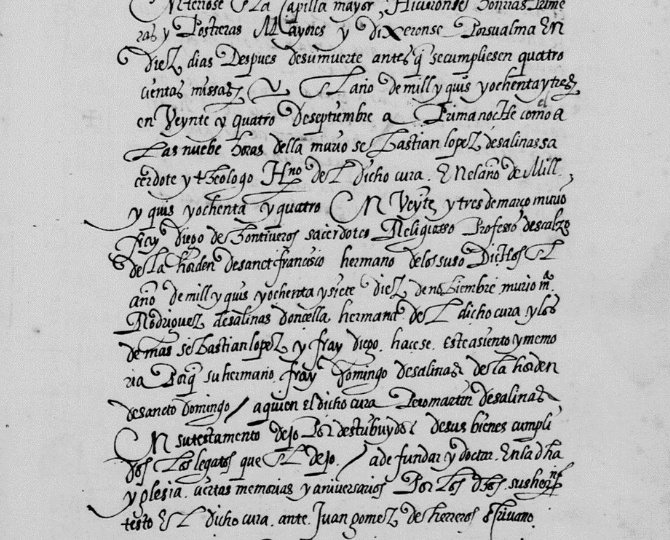 Enterose En La capilla mayor, Hicieronse honrras Prime
ras y Postreras Mayores y dixeronse Porsualma En
Diez dias Despues desumuerte antes q̃ secumpliesen quatro
cientas missas, El año de mill y quis yochenta y tres
en Veynte y quatro Deseptiembre a Prima noche como a
Las nuebe horas della murio sebastian lopez desalinas sa
cerdote y theologo Hno del dicho cura. En el año de Mill
y quis yochenta y quatro En Veynte y tres de março murio
fray diego de hontiveros sacerdote Religiosso Professo descalzo
de la horden desanct francisco hermano delos suso Dichos El
año de mill y quis yochenta ysiete diez de nobiembre murio m.ª
Rodriguez desalinas donçella hermana del dicho cura y los
demas sebastian lopez y fray diego. hacese. Este asiento y memo
ria Porq̃ su hermano fray Domingo desalinas de la horden
desancto domingo / aquien el dicho cura Pero martin desalinas
En sutestamento dejo Por destribuydor desus bienes cumpli
dos Los legatos que El dejo. / a de fundar y doctar. En la dha
yglesia. ciertas memorias y aniversarios Por Los dhos. sus herños
testo El dicho cura. ante. Juan gomez de herreros escrivano.